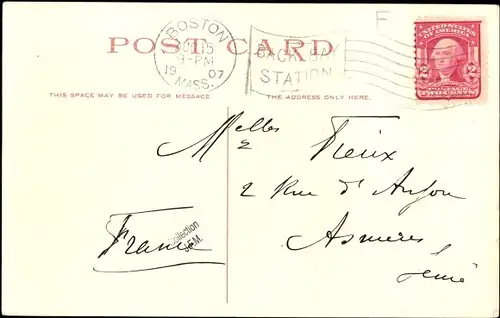 POST CARD
BOSTON
15
9-PM
1907
MASS.
BACK BAY
STATION
F
UNITED STATES
OF AMERICA
2 2
TWO CENTS
THIS SPACE MAY BE USED FOR MESSAGE.
THE ADDRESS ONLY HERE.
Melles Vieux
2 Rue d'Anjou
Asnieres
Seine
France
Collection
J.F.M.